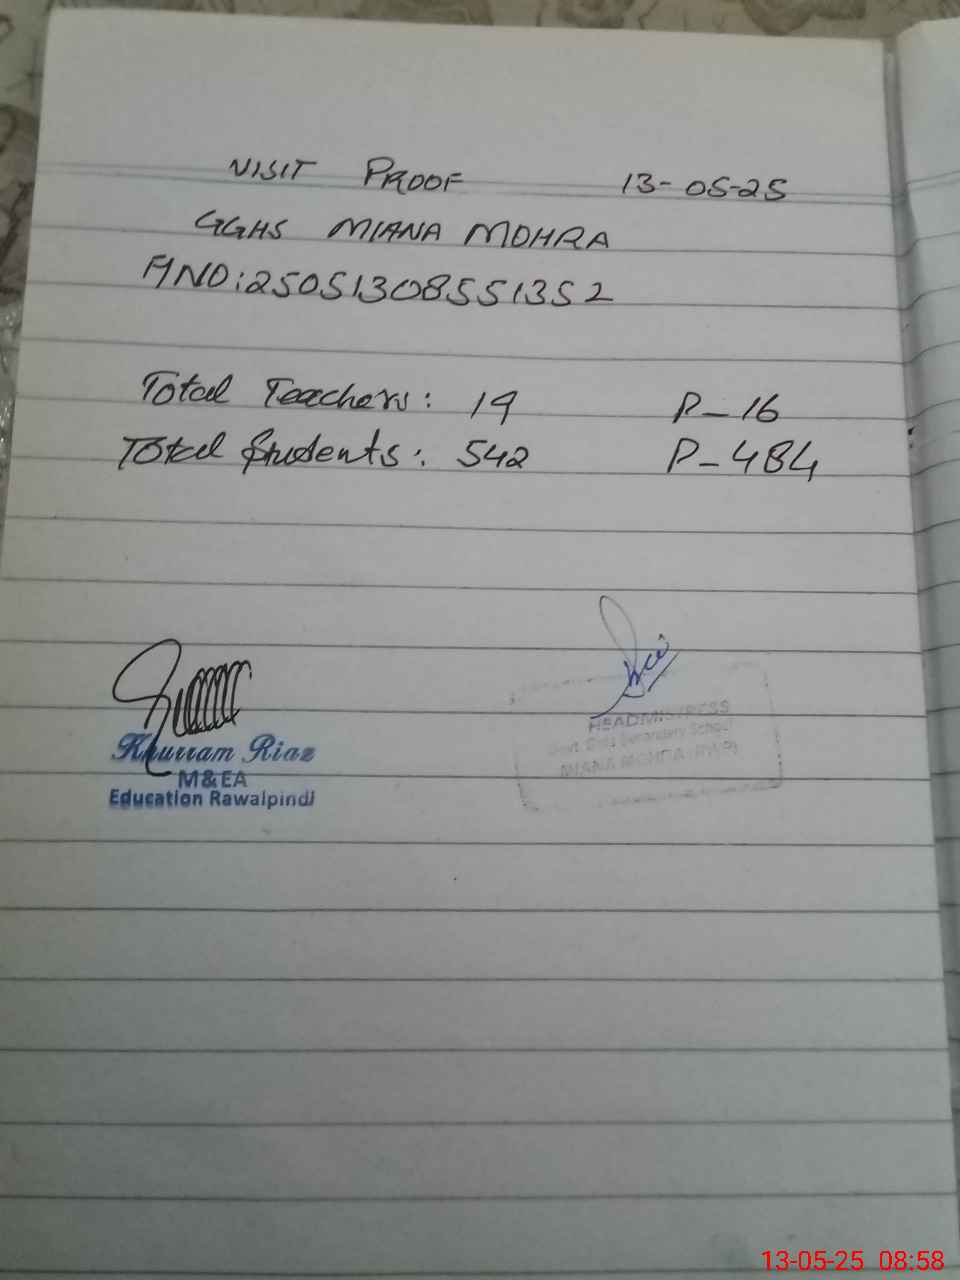 VISIT PROOF 13-05-25
GGHS MIANA MOHRA
ANO:250513085513 52
Total Teachers: 19 P-16
Total Students: 542 P-484
Khurram Riaz
M&EA
Education Rawalpindi
HEADMISTRESS
Govt. Girls Secondary School
MIANA MOHRA (RWP)
13-05-25 08:58